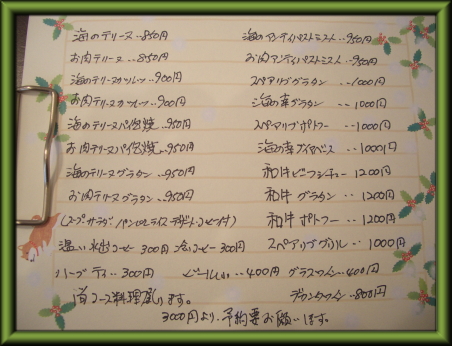 海のテリーヌ‥850円
お肉テリーヌ‥850円
海のテリーヌカツレツ‥900円
お肉テリーヌカツレツ‥900円
海のテリーヌパイ包焼‥950円
お肉テリーヌパイ包焼‥950円
海のテリーヌグラタン‥950円
お肉テリーヌグラタン‥950円
(スープ サラダ パン又はライス デザート・コーヒー付)
温い水出コーヒー 300円 冷いコーヒー 300円
ハーブティ‥300円
海のアンティパストミスト‥950円
お肉アンティパストミスト‥950円
スペアリブグラタン ‥1000円
海の幸グラタン ‥1000円
スペアーリブポトフー ‥1000円
海の幸ブイヤベース ‥1000円
和牛ビーフシチュー 1200円
和牛 グラタン ‥1200円
和牛 ポトフー ‥1200円
スペアリブグリル ‥1000円
ビール ‥400円 グラスワイン‥400円
デカンタワイン‥800円
コース料理承ります。
3000円より、予約要お願います。